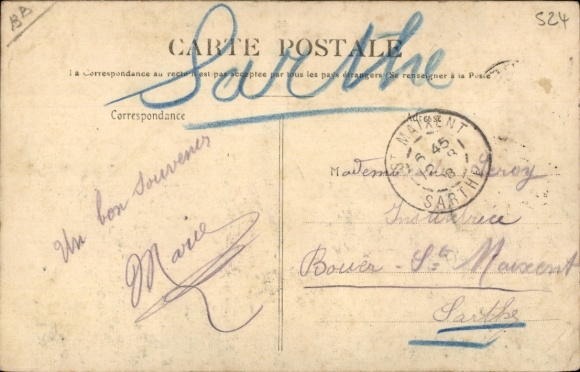 BB
524
Sarthe
CARTE POSTALE
La Correspondance au recto n'est pas acceptée par tous les pays étrangers (Se renseigner à la Poste
Correspondance
Adresse
ST MAIXENT
45
SARTHE
Un bon souvenir
Marie
Mademoiselle Leroy
Institutrice
Bouër - St Maixent
Sarthe